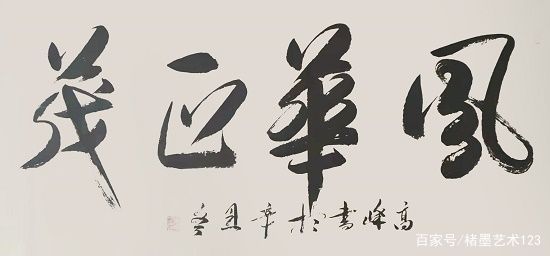 風華正茂
高峰書於辛丑
百家号/楮墨艺术123